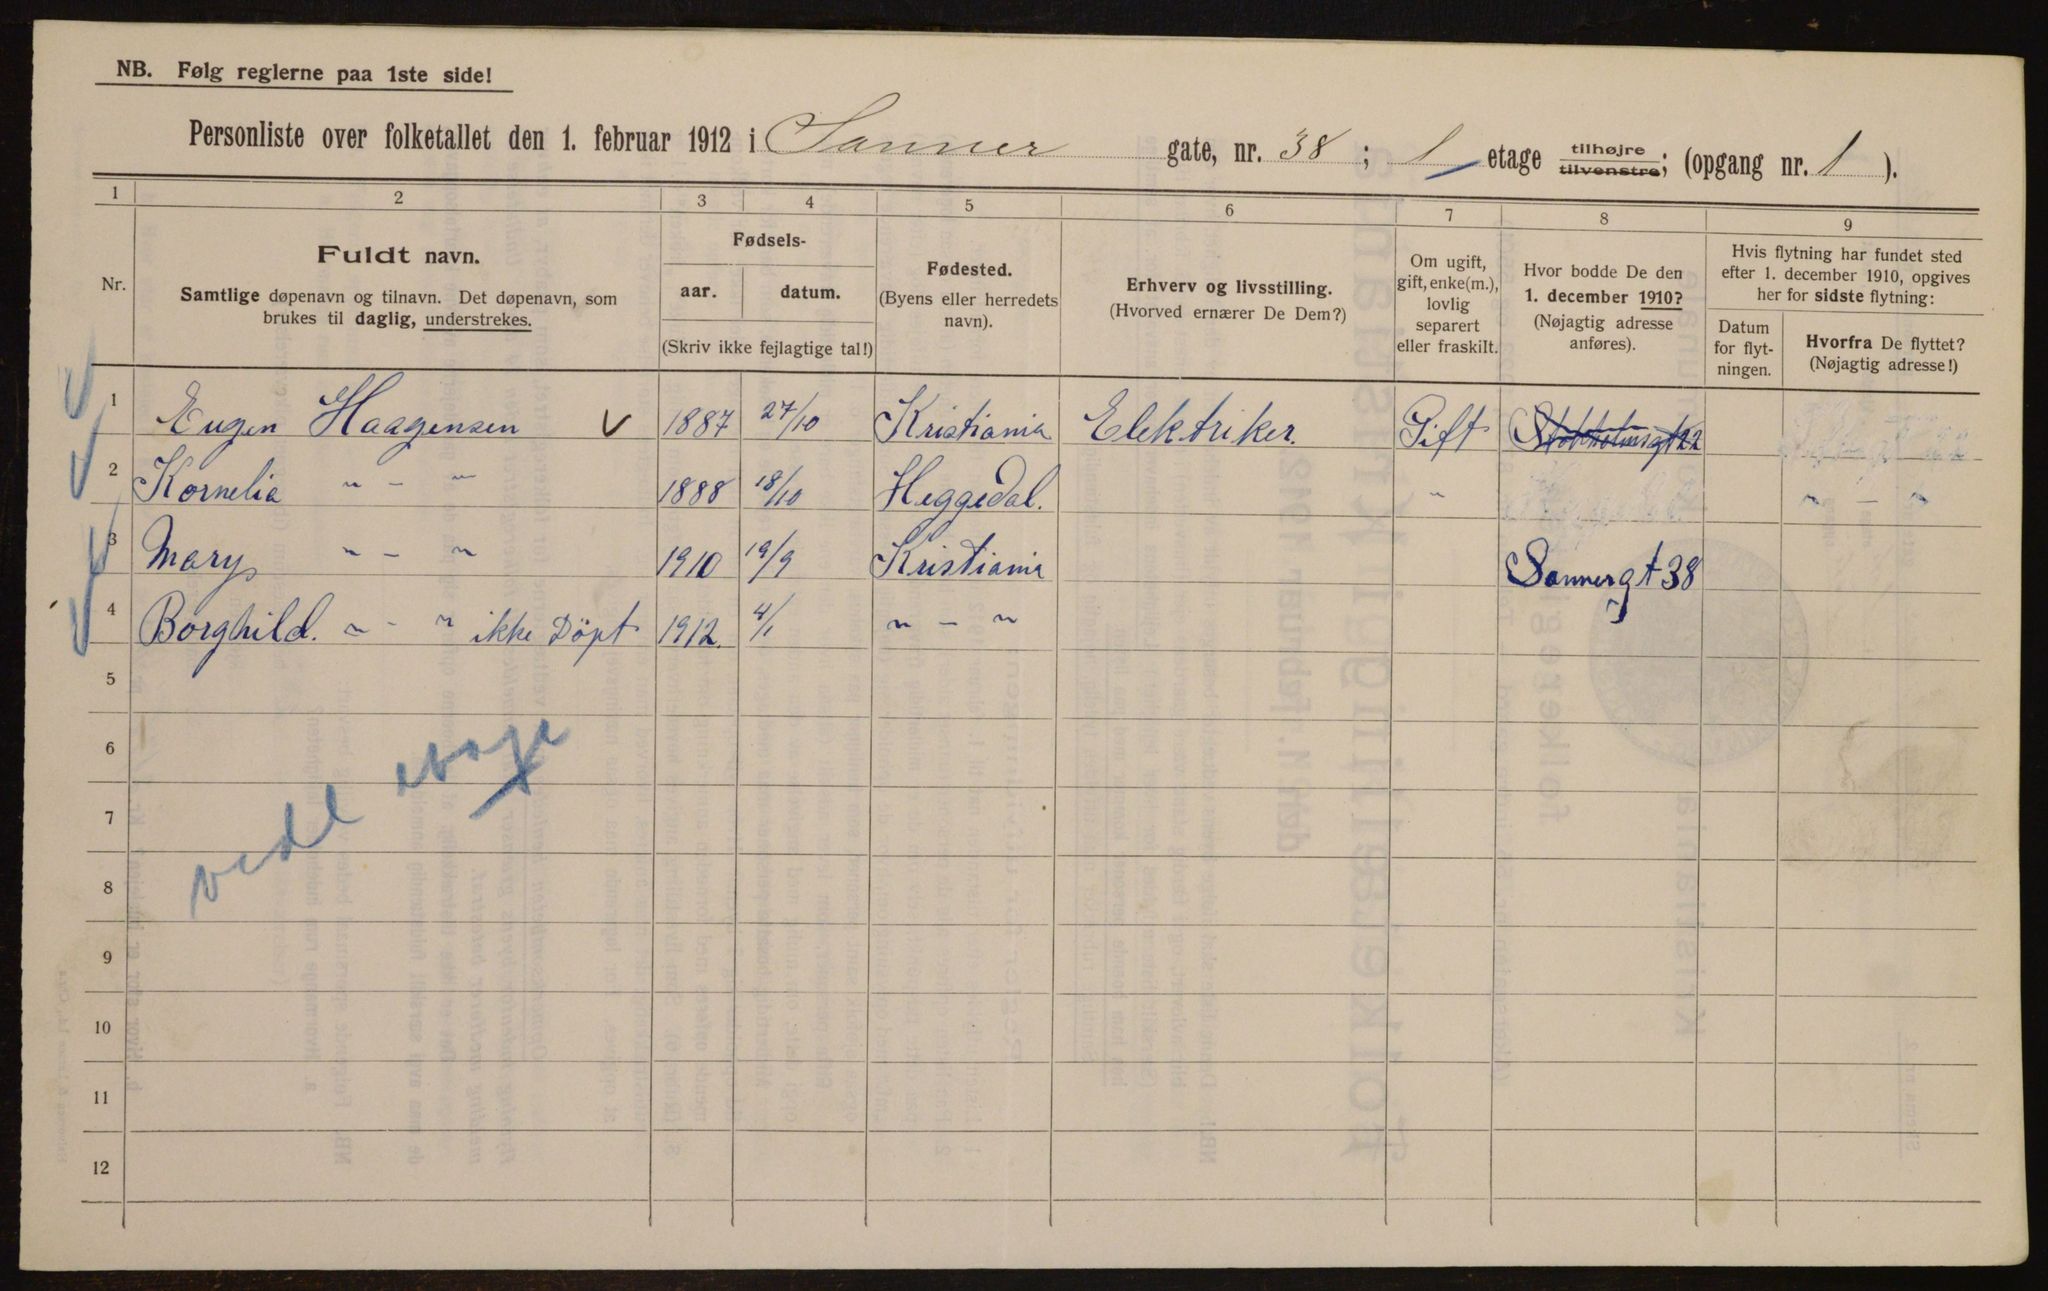 NB. Følg reglerne paa 1ste side!
Personliste over folketallet den 1. februar 1912 i Sanner gate, nr. 38 ; 1 etage tilhøjre tilvenstre; (opgang nr. 1 ).
1 2 3 4 5 6 7 8 9
Nr.
Fuldt navn.
Samtlige døpenavn og tilnavn. Det døpenavn, som
brukes til daglig, understrekes.
Fødsels-
aar. datum.
(Skriv ikke fejlagtige tal!)
Fødested.
(Byens eller herredets
navn).
Erhverv og livsstilling.
(Hvorved ernærer De Dem?)
Om ugift,
gift, enke(m.),
lovlig
separert
eller fraskilt.
Hvor bodde De den
1. december 1910?
(Nøjagtig adresse
anføres).
Hvis flytning har fundet sted
efter 1. december 1910, opgives
her for sidste flytning:
Datum
for flyt-
ningen.
Hvorfra De flyttet?
(Nøjagtig adresse!)
1 Eugen Haagensen 1887 27/10 Kristiania Elektriker. Gift Stokholmsgt 22
2 Kornelia " - " 1888 18/10 Heggedal. " " - "
3 Mary " - " 1910 19/9 Kristiania Sannergt 38
4 Borghild. " - " ikke Döpt 1912. 4/1 " - " "
5
6
7
8
9
10
11
12